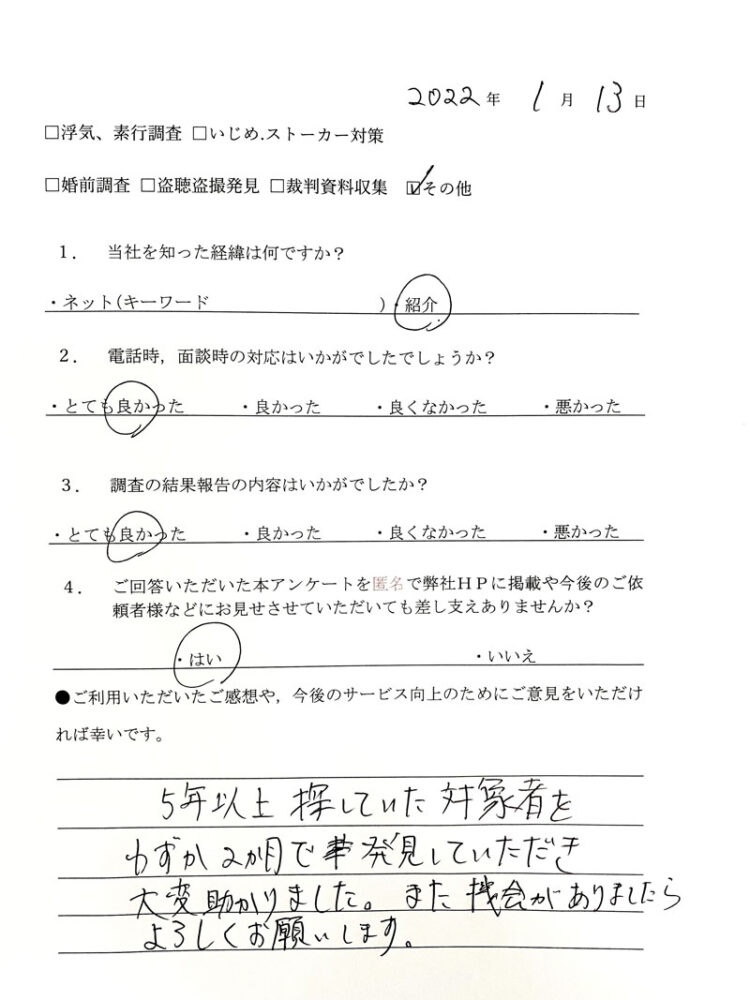 2022年 1月 13日
□浮気、素行調査 □いじめ.ストーカー対策
□婚前調査 □盗聴盗撮発見 □裁判資料収集 ☑その他
1. 当社を知った経緯は何ですか？
・ネット(キーワード )・紹介
2. 電話時，面談時の対応はいかがでしたでしょうか？
・とても良かった ・良かった ・良くなかった ・悪かった
3. 調査の結果報告の内容はいかがでしたか？
・とても良かった ・良かった ・良くなかった ・悪かった
4. ご回答いただいた本アンケートを匿名で弊社HPに掲載や今後のご依
頼者様などにお見せさせていただいても差し支えありませんか？
・はい ・いいえ
●ご利用いただいたご感想や，今後のサービス向上のためにご意見をいただけ
れば幸いです。
5年以上 探していた 対象者を
わずか2か月で発見していただき
大変助かりました。また機会がありましたら
よろしくお願いします。